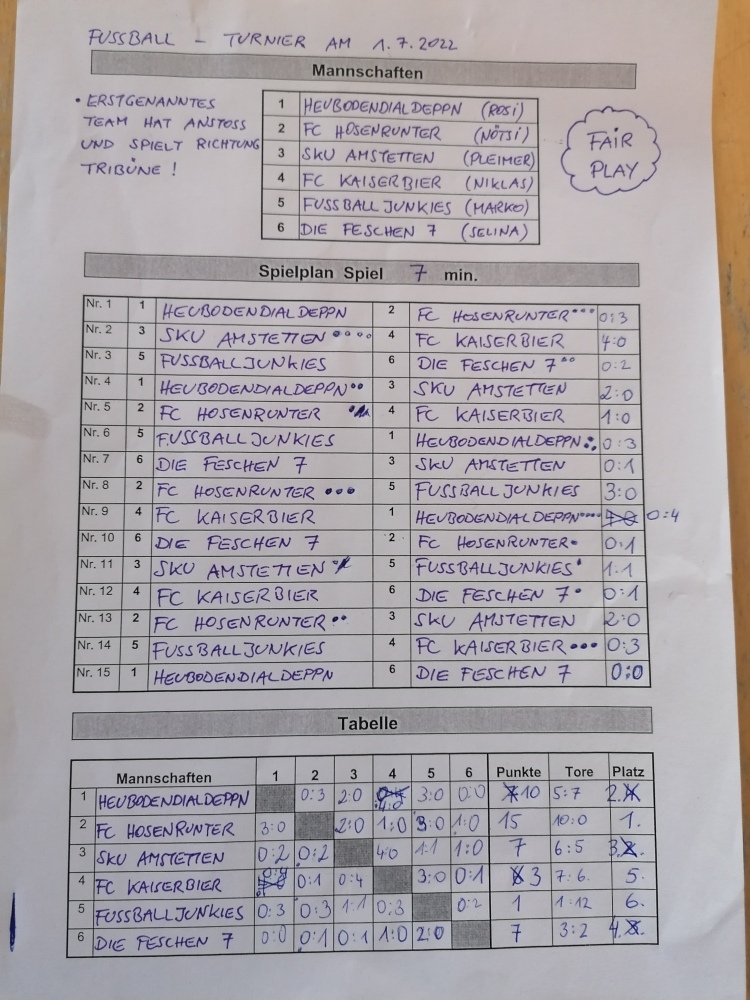 FUSSBALL - TURNIER AM 1.7.2022
Mannschaften
• ERSTGENANNTES
TEAM HAT ANSTOSS
UND SPIELT RICHTUNG
TRIBÜNE !
1 HEUBODENDIALDEPPN (ROSI)
2 FC HOSENRUNTER (NÖTSI)
3 SKU AMSTETTEN (PLEIMER)
4 FC KAISERBIER (NIKLAS)
5 FUSSBALLJUNKIES (MARKO)
6 DIE FESCHEN 7 (SELINA)
FAIR
PLAY
Spielplan Spiel 7 min.
Nr. 1 1 HEUBODENDIALDEPPN 2 FC HOSENRUNTER 0:3
Nr. 2 3 SKU AMSTETTEN 4 FC KAISERBIER 4:0
Nr. 3 5 FUSSBALLJUNKIES 6 DIE FESCHEN 7 0:2
Nr. 4 1 HEUBODENDIALDEPPN 3 SKU AMSTETTEN 2:0
Nr. 5 2 FC HOSENRUNTER 4 FC KAISERBIER 1:0
Nr. 6 5 FUSSBALLJUNKIES 1 HEUBODENDIALDEPPN 0:3
Nr. 7 6 DIE FESCHEN 7 3 SKU AMSTETTEN 0:1
Nr. 8 2 FC HOSENRUNTER 5 FUSSBALLJUNKIES 3:0
Nr. 9 4 FC KAISERBIER 1 HEUBODENDIALDEPPN 0:4
Nr. 10 6 DIE FESCHEN 7 2 FC HOSENRUNTER 0:1
Nr. 11 3 SKU AMSTETTEN 5 FUSSBALLJUNKIES 1:1
Nr. 12 4 FC KAISERBIER 6 DIE FESCHEN 7 0:1
Nr. 13 2 FC HOSENRUNTER 3 SKU AMSTETTEN 2:0
Nr. 14 5 FUSSBALLJUNKIES 4 FC KAISERBIER 0:3
Nr. 15 1 HEUBODENDIALDEPPN 6 DIE FESCHEN 7 0:0
Tabelle
Mannschaften 1 2 3 4 5 6 Punkte Tore Platz
1 HEUBODENDIALDEPPN 0:3 2:0 4:0 3:0 0:0 10 5:7 2.
2 FC HOSENRUNTER 3:0 2:0 1:0 3:0 1:0 15 10:0 1.
3 SKU AMSTETTEN 0:2 0:2 4:0 1:1 1:0 7 6:5 3.
4 FC KAISERBIER 0:4 0:1 0:4 3:0 0:1 3 7:6. 5.
5 FUSSBALLJUNKIES 0:3 0:3 1:1 0:3 0:2 1 1:12 6.
6 DIE FESCHEN 7 0:0 0:1 0:1 1:0 2:0 7 3:2 4.